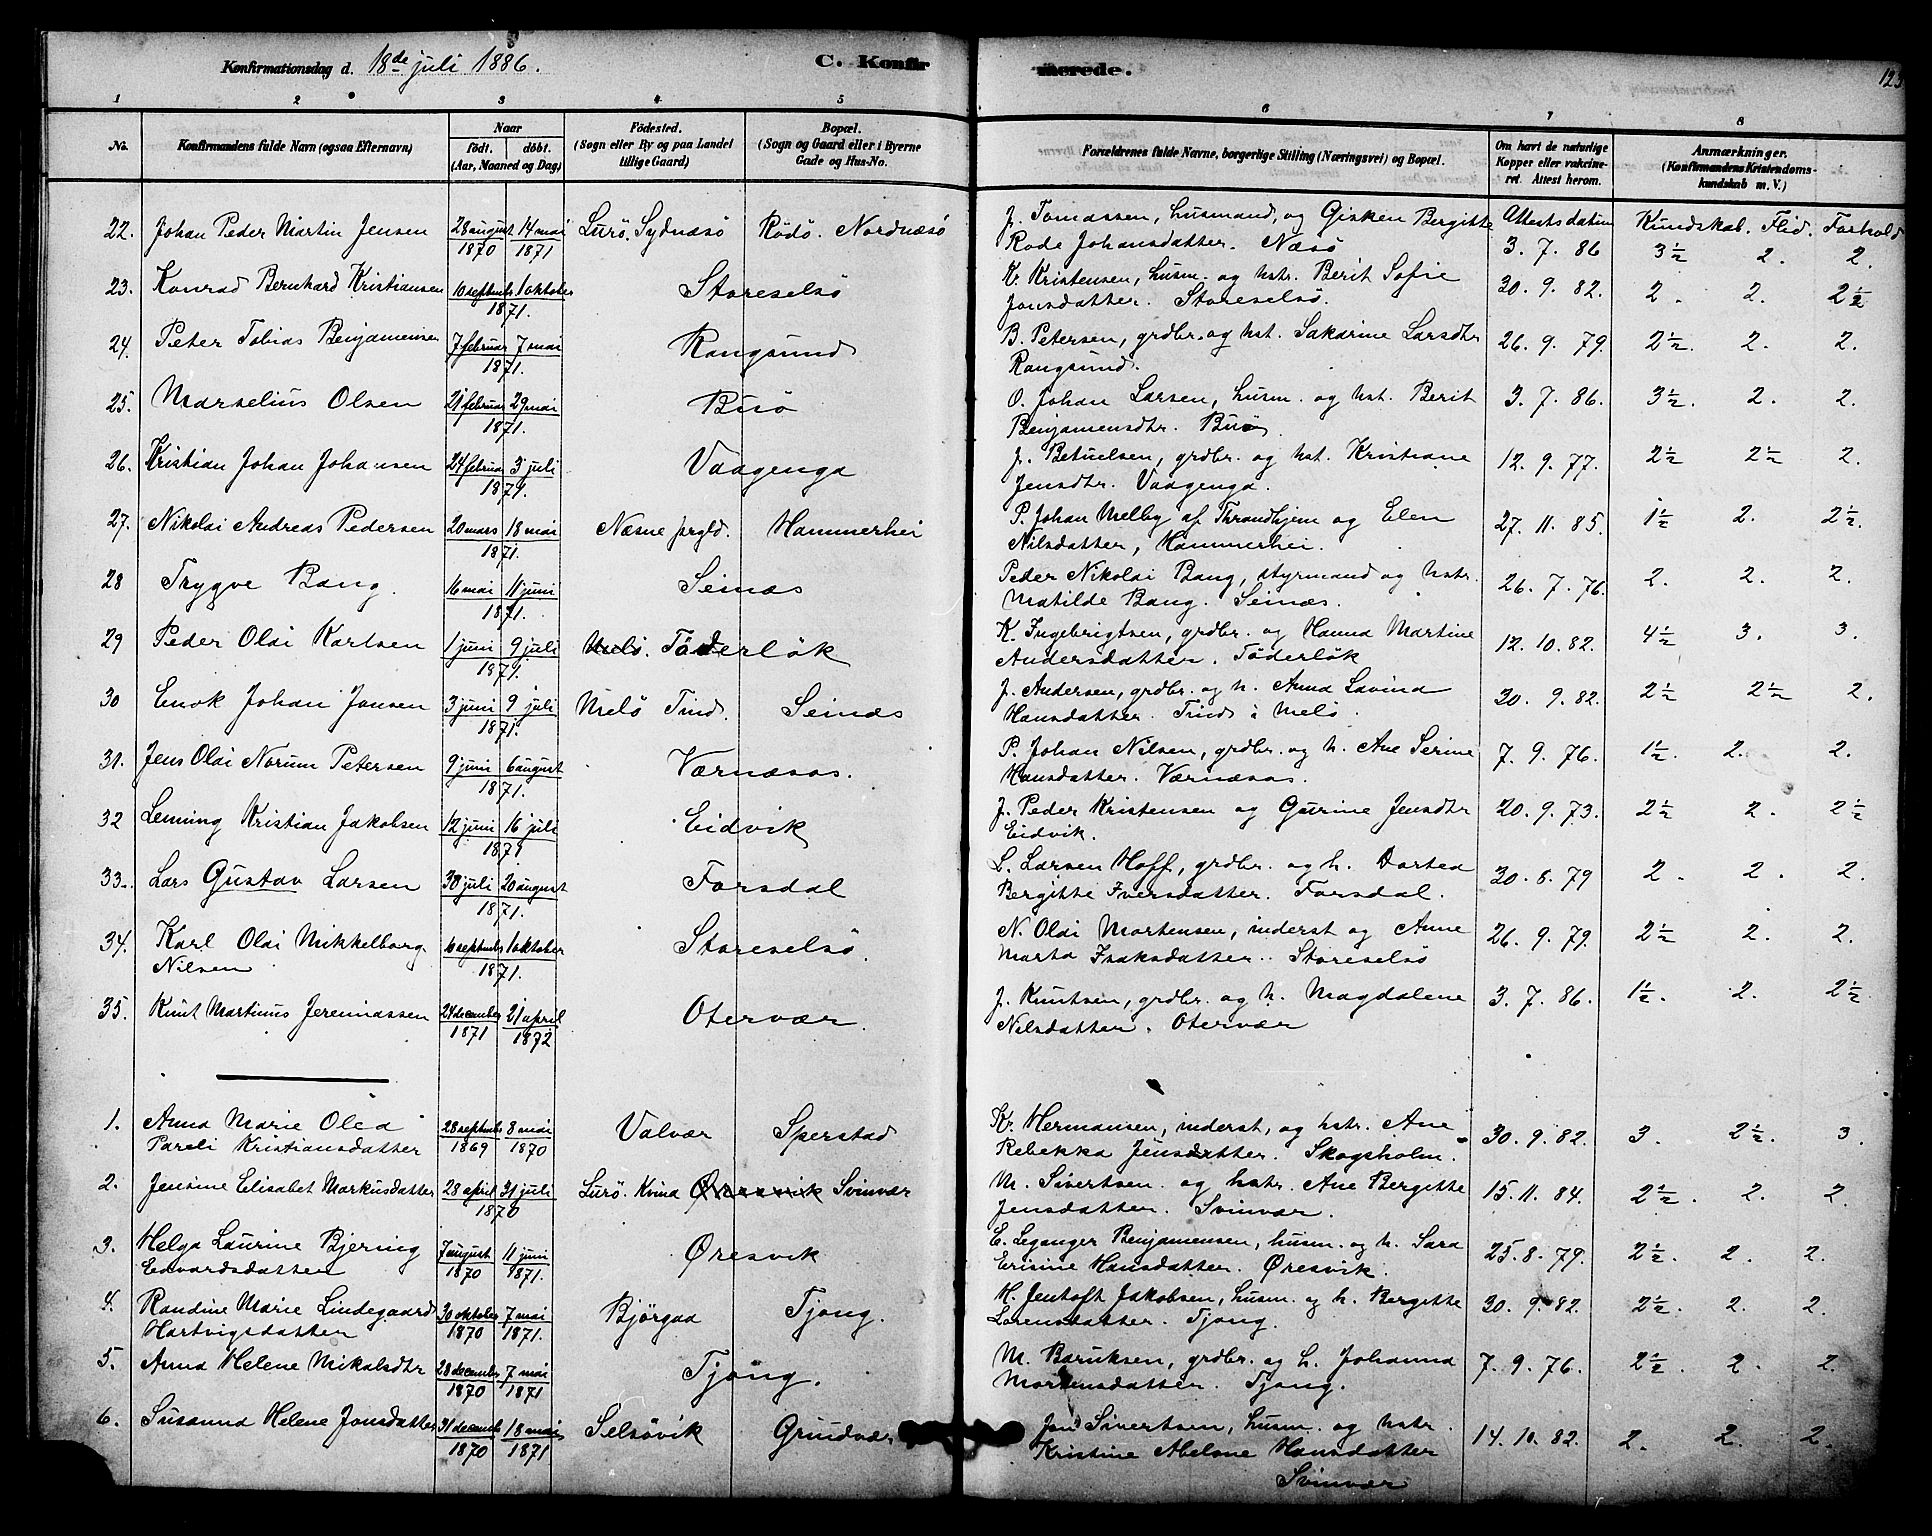 Konfirmationsdag d. 18de juli 1886. C. Konfirmerede. 123
1 2 3 4 5 6 7 8
No. Konfirmandens fulde Navn (ogsaa Efternavn) Naar født. døbt. (Aar, Maaned og Dag) Fødested. (Sogn eller By og paa Landet tillige Gaard) Bopæl. (Sogn og Gaard eller i Byerne Gade og Hus-No. Forældrenes fulde Navne, borgerlige Stilling (Næringsvei) og Bopæl. Om havt de naturlige Kopper eller vakcineret. Attest herom. Anmærkninger. (Konfirmandens Kristendomskundskab m. V.)
Attestsdatum Kundskab. Flid. Forhold
22. Johan Peder Martin Jensen 28 august 1870 14 mai 1871 Lurö. Sydnæsö Rödö. Nordnæsö J. Tomassen, husmand, og Gisken Bergitte 3. 7. 86 3½ 2. 2.
Rode Johansdatter. Næsö
23. Konrad Bernhard Kristiansen 10 september 1 oktober 1871. Storeselsö K. Kristensen, husm. og hstr. Berit Sofie 30. 9. 82. 2. 2. 2½
Jonsdatter. Storeselsö.
24. Peter Tobias Benjamensen 7 februar 7 mai 1871. Rangsund B. Petersen, grdbr. og hst. Sakarine Larsdtr 26. 9. 79. 2½. 2. 2.
Rangsund.
25. Marselius Olsen 21 februar 29 mai 1871. Buö O. Johan Larsen, husm. og hst. Berit 3. 7. 86. 3½. 2. 2.
Benjamensdtr. Buö
26. Kristian Johan Johansen 24 februar 3 juli 1871. Vaagenga J. Betuelsen, grdbr. og hst. Kristiane 12. 9. 77. 2½ 2½ 2.
Jensdtr. Vaagenga.
27. Nikolai Andreas Pedersen 20 mars 18 mai 1871. Næsne prgld. Hammerhei P. Johan Melby af Throndhjem og Elen 27. 11. 85. 1½ 2. 2½.
Nilsdatter, Hammerhei.
28 Trygve Bang. 16 mai 11 juni 1871. Seinæs Peder Nikolai Bang, styrmand og hstr. 26. 7. 76. 2. 2. 2.
Matilde Bang. Seinæs.
29 Peder Olai Karlsen 1 juni 9 juli 1871. Melö. Töderlök K. Ingebrigtsen, grdbr. og Hanna Martine 12. 10. 82. 4½ 3. 3.
Andersdatter. Töderlök
30 Enok Johan Jonsen 3 juni 9 juli 1871. Melö Tind. Seinæs J. Andersen, grdbr. og h. Anna Lavina 30. 9. 82. 2½ 2½ 2.
Hansdatter. Tind i Melö.
31. Jens Olai Norum Petersen 9 juni 6 august 1871. Værnæsos. P. Johan Nilsen, grdbr. og h. Ane Serine 7. 9. 76. 1½. 2. 2.
Hansdatter. Værnæsos.
32 Lenning Kristian Jakobsen 12 juni 16 juli 1871 Eidvik J. Peder Kristensen og Gurine Jensdtr 20. 9. 73. 2½ 2. 2½
Eidvik.
33. Lars Gustav Larsen 30 juli 20 august 1871. Forsdal L. Larsen Hoff, grdbr. og h. Dortea 30. 8. 79 2. 2. 2.
Bergitte Iversdatter. Forsdal.
34. Karl Olai Mikkelborg 10 september 1 oktober 1871. Storeselsö. N. Olai Mortensen, inderst og Anne 26. 9. 79. 2½ 2. 2.
Nilsen Marta Isaksdatter. Storeselsö
35. Knut Martinus Jeremiassen 24 december 1871 21 april 1872 Otervær. J. Knutsen, grdbr. og h. Magdalene 3. 7. 86. 1½. 2. 2½
Nilsdatter. Otervær
1. Anna Marie Olea 28 september 1869 8 mai 1870 Valvær Sperstad Kr. Hermansen, inderst, og hstr. Ane 30. 9. 82. 3. 2½. 3.
Pareli Kristiansdatter Rebekka Jensdatter. Skogsholm.
2. Jensine Elisabet Markusdatter 28 april 31 juli 1870 Lurö. Kvina Øresvik Svinvær M. Sivertsen og hstr. Ane Bergitte 15. 11. 84. 2½. 2. 2
Jensdatter. Svinvær.
3. Helga Laurine Bjering 7 august 1870 11 juni 1871. Øresvik E. Leganger Benjamensen, husm. og h. Sara 25. 8. 79. 2½. 2. 2.
Edvardsdatter Erisine Hansdatter. Øresvik.
4. Randine Marie Lindegaard 30 oktober 1870 7 mai 1871. Bjørgaa Tjong. H. Jentoft Jakobsen, husm. og h. Bergitte 30. 9. 82. 2½. 2. 2.
Hartvigsdatter Lorensdatter. Tjong.
5. Anna Helene Mikalsdtr 28 december 1870 7 mai 1871 Tjong. M. Baruksen, grdbr. og h. Johanna 7. 9. 76. 2½ 2. 2.
Mortensdatter. Tjong.
6. Susanna Helene Jonsdatter 31 december 1870 18 mai 1871 Selsövik Grundvær Jon Sivertsen, husm. og hstr. 14. 10. 82. 2. 2. 2.
Kristine Abelone Hansdatter
Svinvær